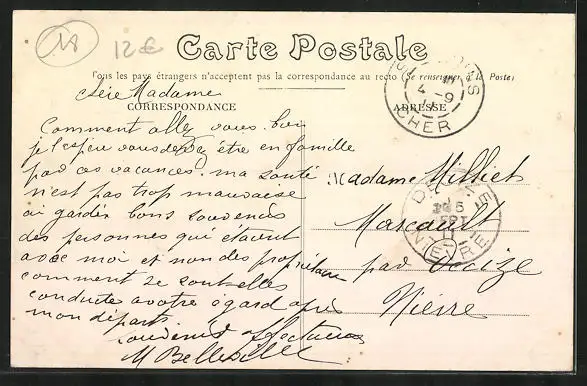 18
12€
Carte Postale
Tous les pays étrangers n'acceptent pas la correspondance au recto (Se renseigner à la Poste)
CORRESPONDANCE
ADRESSE
Chère Madame
Comment allez vous. bien
vous devez être en famille
par ces vacances. ma santé
n'est pas trop mauvaise
ai gardée bons souvenirs
des personnes qui étaient
avec moi et non des propriétaire
comment se sont elles
conduites a votre egard après
mon départ
souvenirs affectueux
M Belleville
Madame Milliet
par Decize
Nièvre
4 -9
CHER
DECIZE
5
SEPT
11
NIEVRE